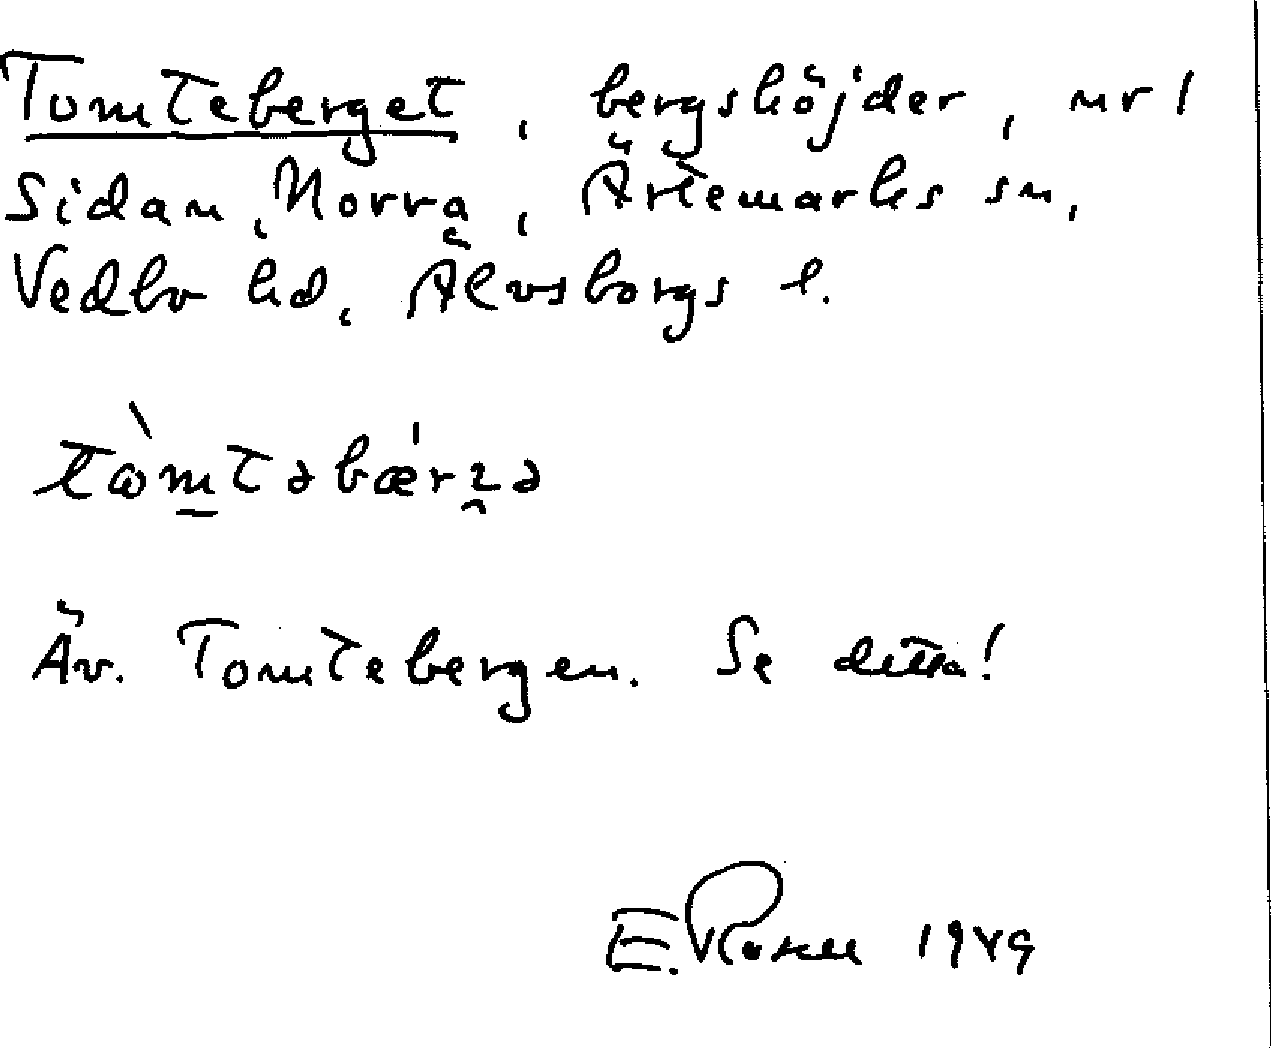 Tomteberget, bergshöjder, nr 1
Sidan, Norra, Ärtemarks sn,
Vedbo hd, Älvsborgs l.
tὼm̲təbæ̀rʒə
Äv. Tomtebergen. Se detta!
E. Rosell 1949